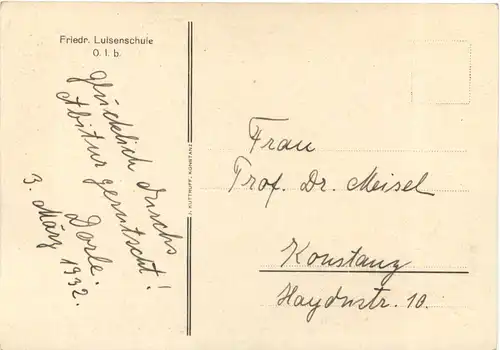 Friedr. Luisenschule
O. I. b.
glücklich durchs
Abitur gerutscht!
Dorle.
3. März 1932.
J. KUTTRUFF, KONSTANZ
Frau
Prof. Dr. Meisel
Konstanz
Haydnstr. 10.